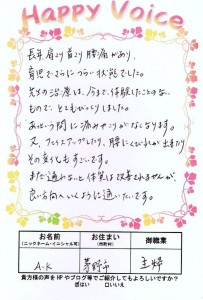 Happy Voice
長年肩こり首こり腰痛があり、
育児でさらにつらい状態でした。
先生の治療は、今まで体験したことない
もので、とてもびっくりしました。
あっという間に痛みやコリがなくなります。
又、フェイスアップしたり、腰にくびれが出来たり
その変化もすごいです。
まだ通わないと体質は改善されませんが、
良い方向へいくように通いたいです。
お名前
(ニックネーム・イニシャル可)
お住まい
(市町村)
御職業
A.K
茅野市
主婦
貴方様の声をHPやブログ等でご紹介してもよろしいですか？
☑はい 口いいえ